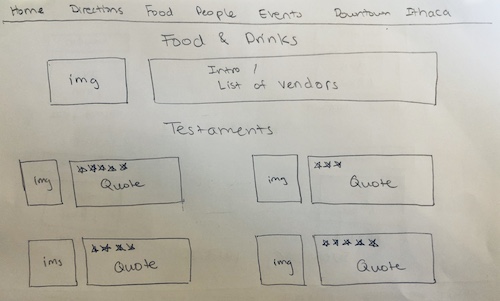 Home Directions Food People Events Downtown Ithaca
Food & Drinks
img
Intro /
List of vendors
Testaments
img
☆☆☆☆☆
Quote
img
☆☆☆
Quote
img
☆☆☆☆
Quote
img
☆☆☆☆☆
Quote